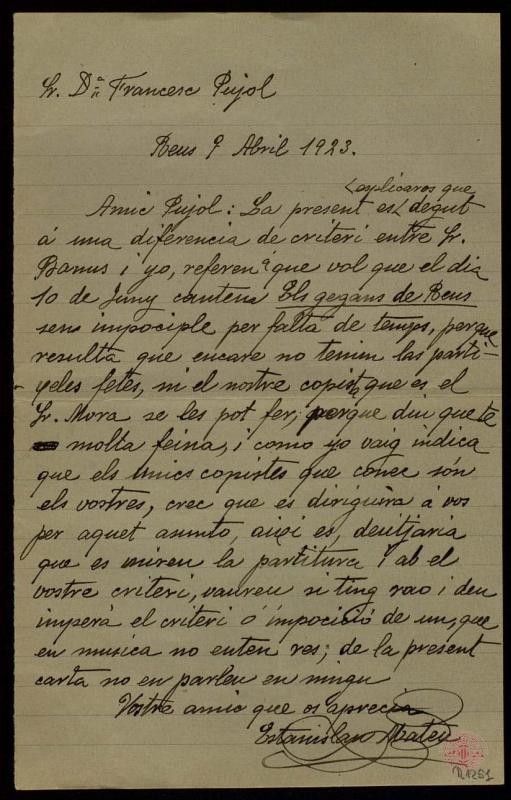 Sr. Dn. Francesc Pujol
Reus 9 Abril 1923.
explicaros que
Amic Pujol: La present es degut
á una diferencia de criteri entre Sr.
Banus i yo, referen á que vol que el dia
10 de Juny cantem Els gegans de Reus
sens impociple per falta de temps, perque
resulta que encare no tenim las parti-
yeles fetes, ni el nostre copista que es el
Sr. Mora se les pot fer, perque diu que te
molta feina, i como yo vaig indica
que els unics copistes que conec són
els vostres, crec que es dirigirà á vos
per aquet asunto, aixi es, desitjaria
que es miren la partitura i ab el
vostre criteri, vaureu si ting rao i deu
imperá el criteri ó impocició de un, que
en musica no enten res; de la present
carta no en parleu en ningu
Vostre amic que os aprecia
Estanislao Mateu
R.1261